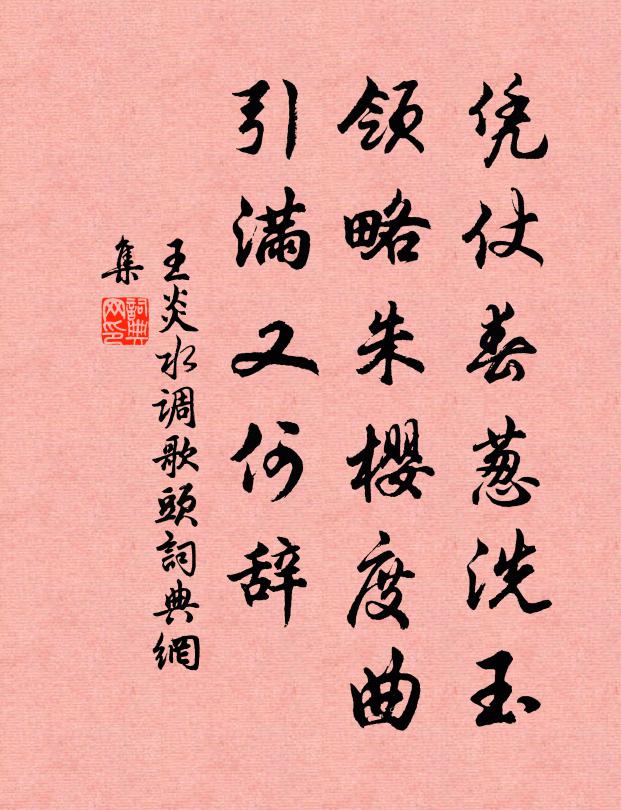 凭仗春葱洗玉
领略朱樱度曲
引满又何辞
王炎水调歌頭詞典網
集
詞典
网印